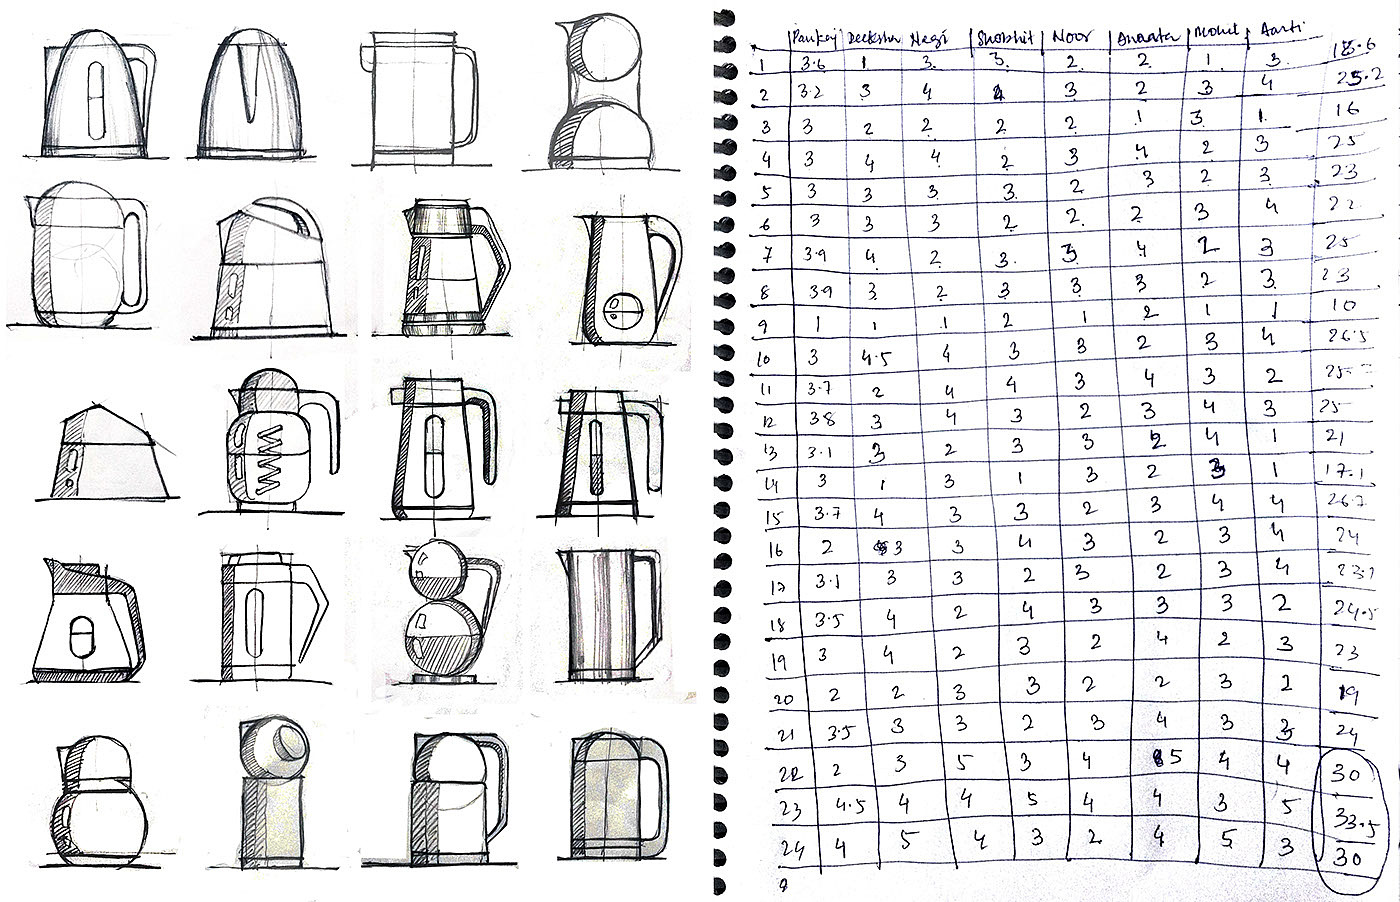 Pankaj Deeksha Negi Shobhit Noor Ananta Mohit Aarti
1 3.6 1 3 3 2 2 1 3 18.6
2 3.2 3 4 3 2 3 4 25.2
3 3 2 2 2 2 1 3 1 16
4 3 4 4 2 3 4 2 3 25
5 3 3 3 3 2 3 2 3 23
6 3 3 3 2 2 2 3 4 22
7 3.9 4 2 3 3 4 2 3 25
8 3.9 3 2 3 3 3 2 3 23
9 1 1 1 2 1 2 1 1 10
10 3 4.5 4 3 3 2 3 4 26.5
11 3.7 2 4 4 3 4 3 2 25.
12 3.8 3 4 3 2 3 4 3 25
13 3.1 3 2 3 3 2 4 1 21
14 3 1 3 1 3 2 3 1 17.1
15 3.7 4 3 3 2 3 4 4 26.7
16 2 3 3 4 3 2 3 4 24
17 3.1 3 3 2 3 2 3 4 23.1
18 3.5 4 2 4 3 3 3 2 24.5
19 3 4 2 3 2 4 2 3 23
20 2 2 3 3 2 2 3 2 19
21 3.5 3 3 2 3 4 3 3 24
22 2 3 5 3 4 5 4 4 30
23 4.5 4 4 5 4 4 3 5 33.5
24 4 5 4 3 2 4 5 3 30